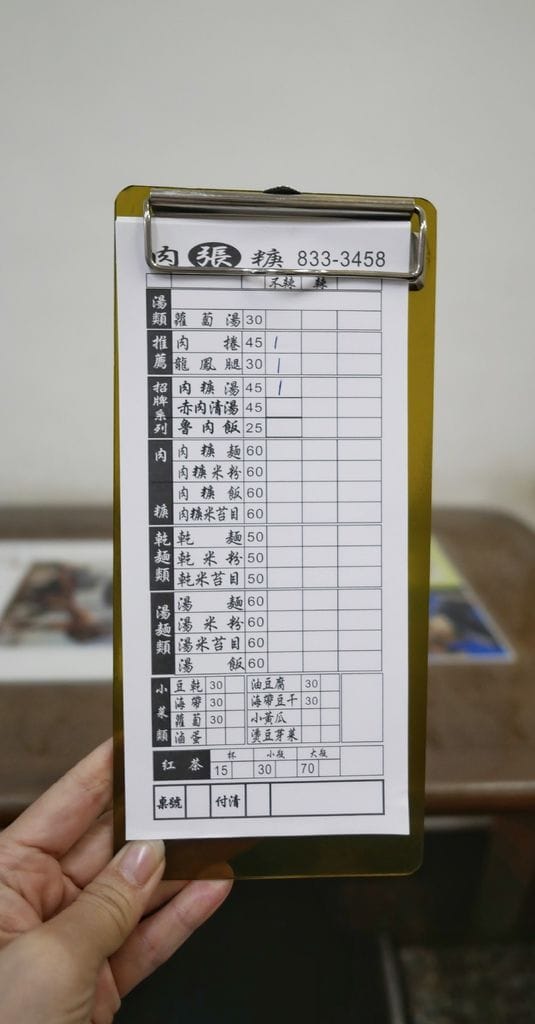 肉 張 糠 833-3458
不辣 辣
湯類
蘿蔔湯 30
推薦
肉捲 45 /
龍鳳腿 30 /
招牌系列
肉糠湯 45 /
赤肉清湯 45
魯肉飯 25
肉糠
肉糠麵 60
肉糠米粉 60
肉糠飯 60
肉糠米苔目 60
乾麵類
乾麵 50
乾米粉 50
乾米苔目 50
湯麵類
湯麵 60
湯米粉 60
湯米苔目 60
湯飯 60
小菜類
豆乾 30 油豆腐 30
海帶 30 海帶豆干 30
蘿蔔 30 小黃瓜
滷蛋 燙豆芽菜
紅茶 杯 小瓶 大瓶
15 30 70
桌號 付清